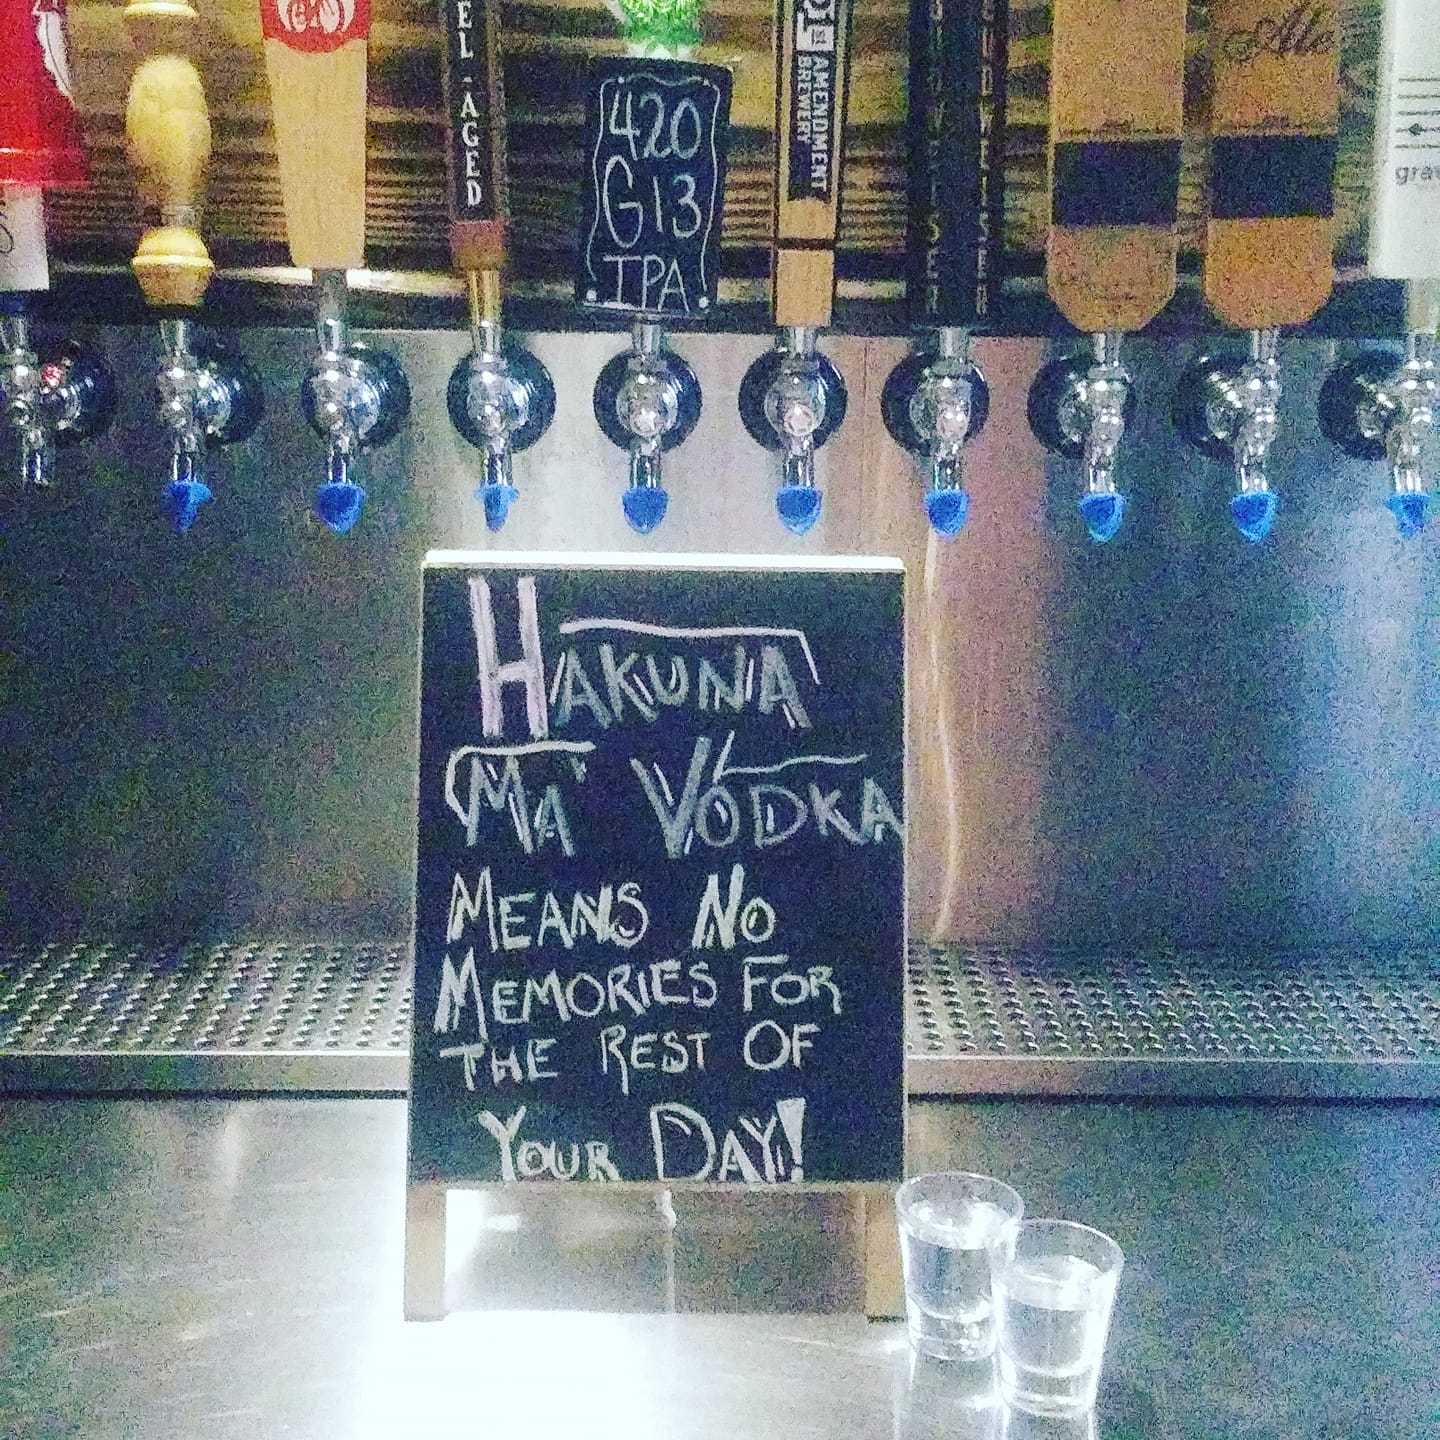 EL-AGED
420
G13
IPA
21ST AMENDMENT
BREWERY
Ale
grav
HAKUNA
MA VODKA
MEANS NO
MEMORIES FOR
THE REST OF
YOUR DAY!